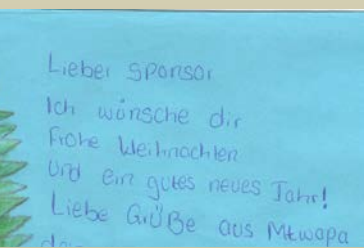 Lieber Sponsor
Ich wünsche dir
Frohe Weihnachten
Und ein gutes neues Jahr!
Liebe Grüße aus Mtwapa